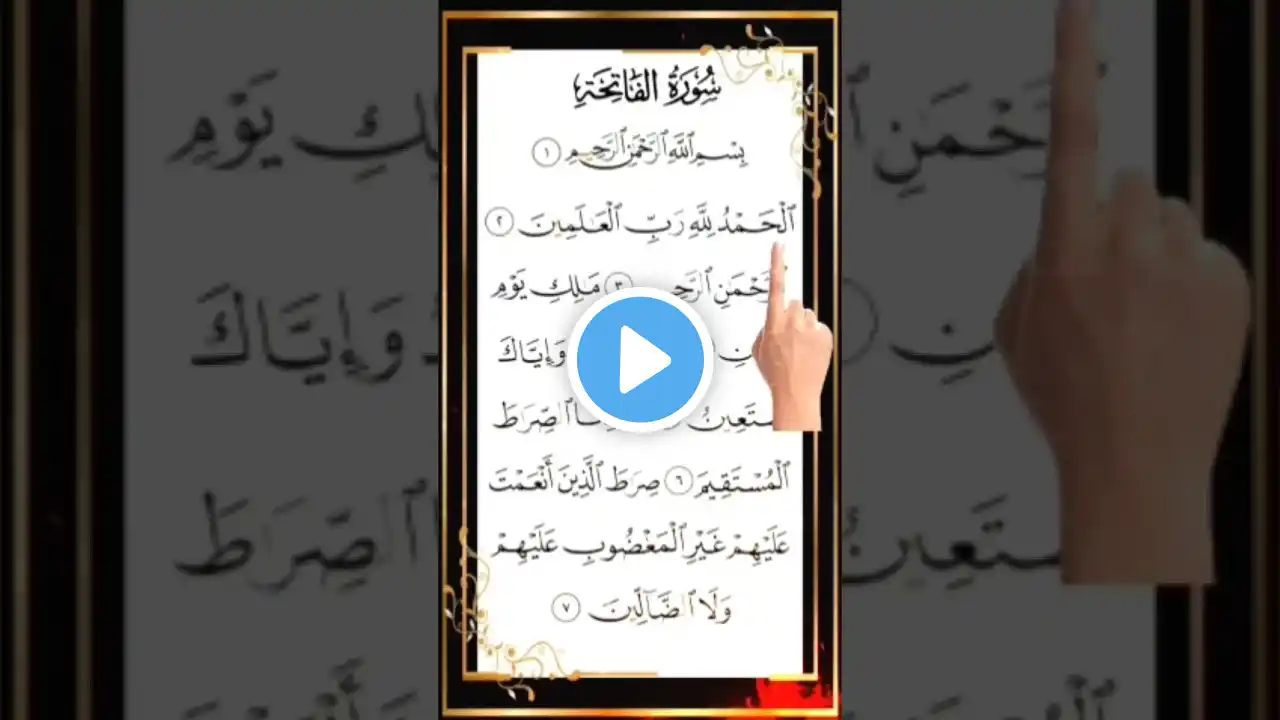 سُورَةُ الفَاتِحَةِ
بِسْمِ ٱللَّهِ ٱلرَّحْمَٰنِ ٱلرَّحِيمِ ١
ٱلْحَمْدُ لِلَّهِ رَبِّ ٱلْعَـٰلَمِينَ ٢
مَـٰلِكِ يَوْمِ
وَإِيَّاكَ
ٱلصِّرَٰطَ
ٱلْمُسْتَقِيمَ ٦ صِرَٰطَ ٱلَّذِينَ أَنْعَمْتَ
عَلَيْهِمْ غَيْرِ ٱلْمَغْضُوبِ عَلَيْهِمْ
وَلَا ٱلضَّآلِّينَ ٧